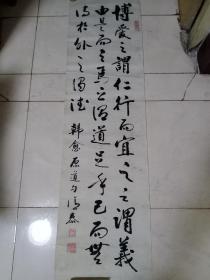 博愛之謂仁行而宜之之謂義
由是而之焉之謂道足乎己而無
待於外之謂德
韓愈原道句